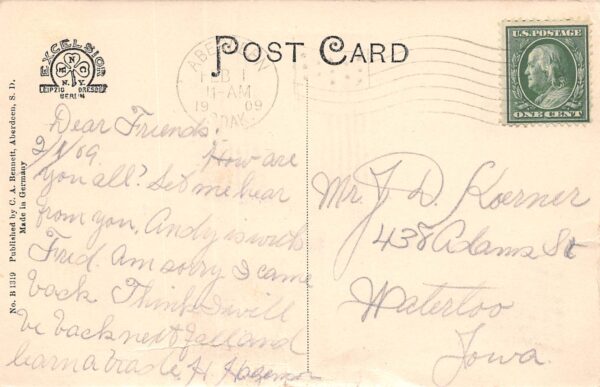 POST CARD
EXCELSIOR
M N C
N.Y.
LEIPZIG DRESDEN
BERLIN
ABERDEEN
FEB 1
11-AM
1909
S.DAK.
U.S. POSTAGE
ONE CENT
No. B 1319 Published by C. A. Bennett, Aberdeen, S. D.
Made in Germany
Dear Friends:
2/1/09. How are
you all? Let me hear
from you, Andy is with
Fred. Am sorry I came
back Think I will
be back next fall and
learn a trade, H.
Mr. J. D. Koerner
438 Adams St
Waterloo
Iowa.